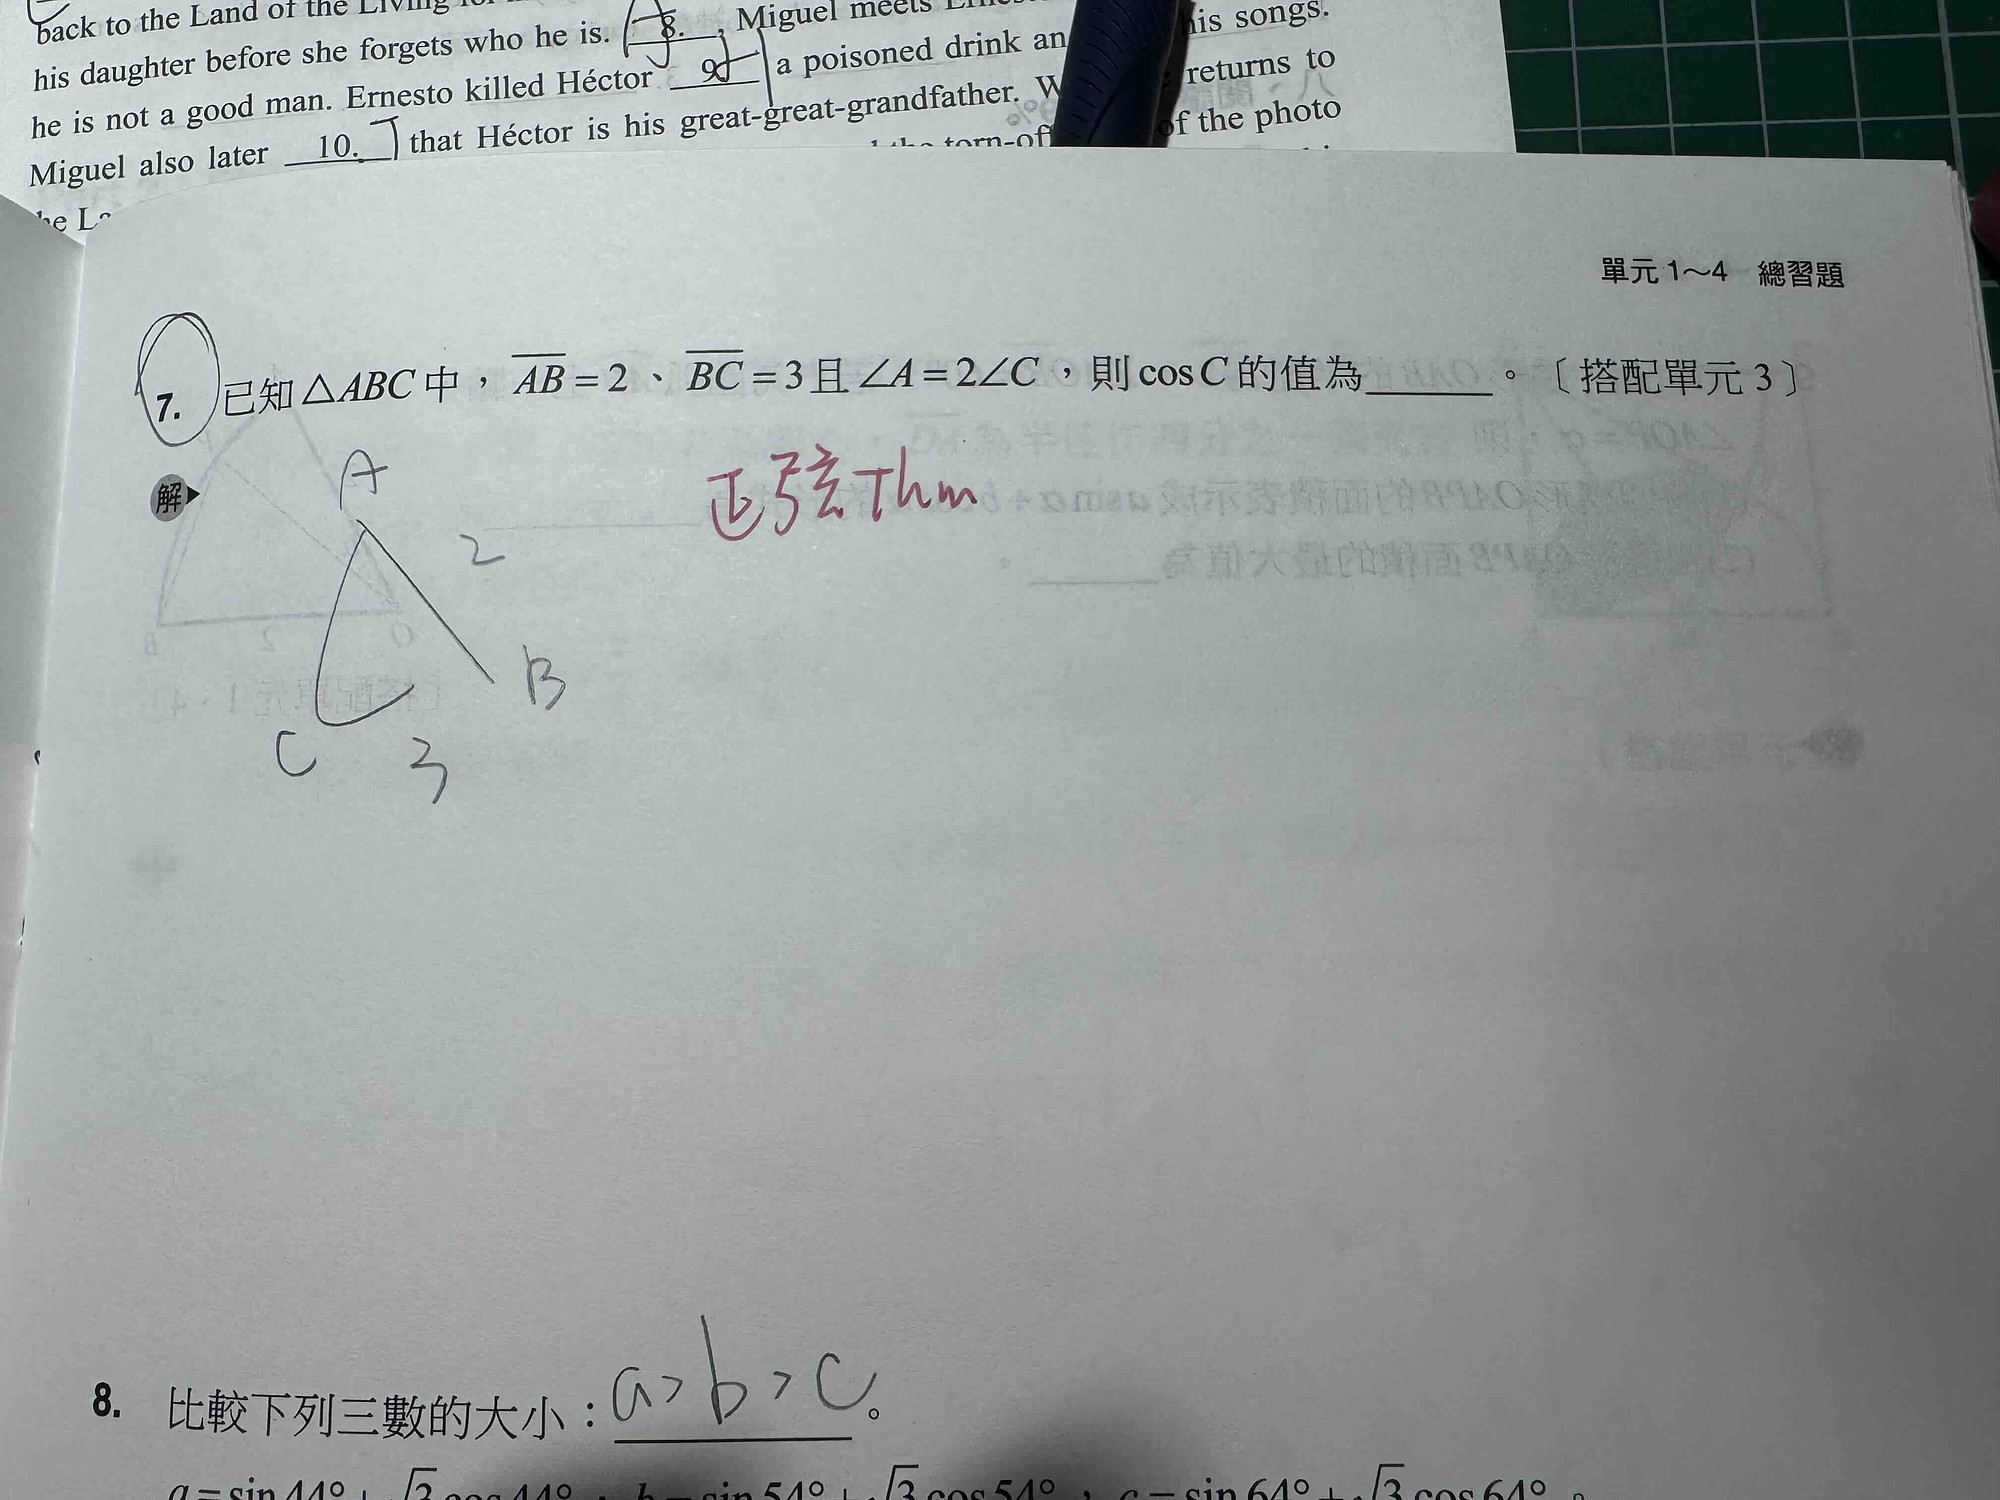 back to the Land of the Living
his daughter before she forgets who he is. 8. , Miguel meets his songs.
he is not a good man. Ernesto killed Héctor 9. a poisoned drink an returns to
Miguel also later 10. that Héctor is his great-great-grandfather. W of the photo
he the torn-off
單元 1～4 總習題
7. 已知△ABC中，AB=2、BC=3且∠A=2∠C，則cosC的值為______。〔搭配單元 3〕
解
正弦Thm
A
2
B
C
3
8. 比較下列三數的大小：a>b>c。
a=sin44°+√3cos44°，b=sin54°+√3cos54°，c=sin64°+√3cos64°。